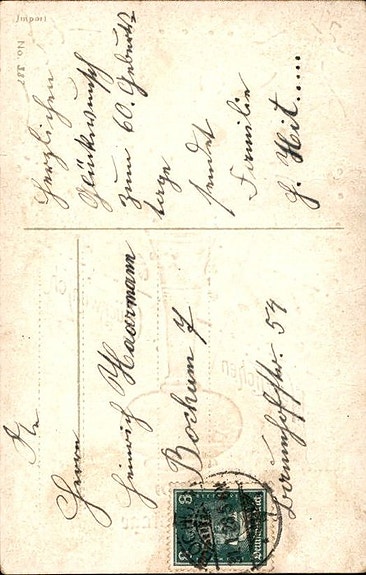 Import
No. 787
Herzlichen
Glückwunsch
zum 60. Geburts-
tage
sendet
Familie
G. Hit.....
An
Herrn
Heinrich Haarmann
Bochum 7
54
8 8
Deutsches Reich